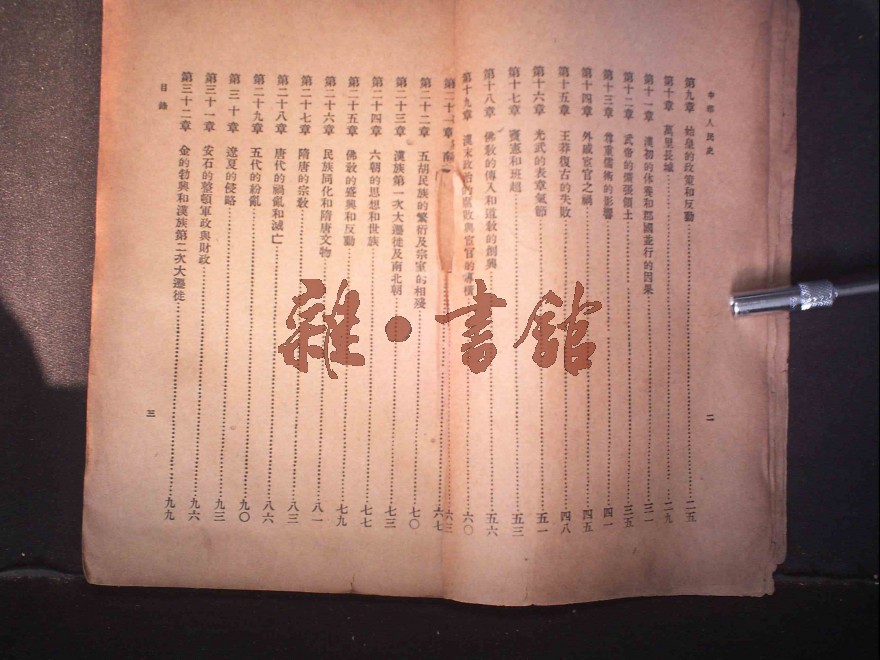 人民史
第九章 始皇的政策和反動 二五
第十章 萬里長城 二九
第十一章 漢初的休養和郡國並行的因果 三一
第十二章 武帝的擴張領土 三五
第十三章 尊重儒術的影響 四一
第十四章 外戚宦官之禍 四五
第十五章 王莽復古的失敗 四八
第十六章 光武的表章氣節 五一
第十七章 竇憲和班超 五三
第十八章 佛敎的傳入和道敎的創興 五六
第十九章 漢末政治的腐敗與宦官的專橫 六〇
二
第二十一章 六三
第二十二章 五胡民族的繁衍及宗室的相殘 六七
第二十三章 漢族第一次大遷徙及南北朝 七〇
第二十四章 六朝的思想和世族 七三
第二十五章 佛敎的盛興和反動 七七
第二十六章 民族同化和隋唐文物 七九
第二十七章 隋唐的宗敎 八一
第二十八章 唐代的禍亂和滅亡 八三
第二十九章 五代的紛亂 八六
第三十章 遼夏的侵略 九〇
第三十一章 安石的整頓軍政與財政 九三
第三十二章 金的勃興和漢族第二次大遷徙 九六
九九
目錄
三
雜·書館